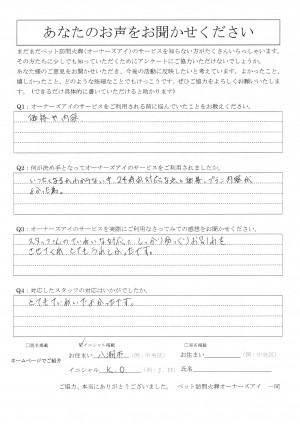 あなたのお声をお聞かせください
まだまだペット訪問火葬(オーナーズアイ)のサービスを知らない方がたくさんいらっしゃいます。
その方たちに少しでも知っていただくためにアンケートにご協力いただけないでしょうか。
あなた様のご意見をお聞かせいただき、今後の活動に反映したいと考えています。よかったこと、
嬉しかったこと、どのような些細なことでもけっこうです。ぜひご協力をよろしくお願いいたします。
(できるだけ具体的に書いていただけると助かります)
Q1:オーナーズアイのサービスをご利用される前に悩んでいたことをお教えください。
価格や内容
Q2:何が決め手となってオーナーズアイのサービスをご利用されましたか。
24時間対応
よかった
Q3:オーナーズアイのサービスを実際にご利用なさってみての感想をお聞かせください。
スタッフさんのていねいな対応と、しっかりゆっくりお別れを
させてくれ とてもうれしかったです。
Q4:対応したスタッフの対応はいかがでしたか。
とてもていねいでよかったです。
ホームページでご紹介
□匿名掲載
イニシャル掲載
□実名掲載
お住まい 八潮市 (例:中央区)
お住まい (例:中央区)
イニシャル K.O (例:J.H)
氏名
ご協力、本当にありがとうございました。 ペット訪問火葬オーナーズアイ 一同